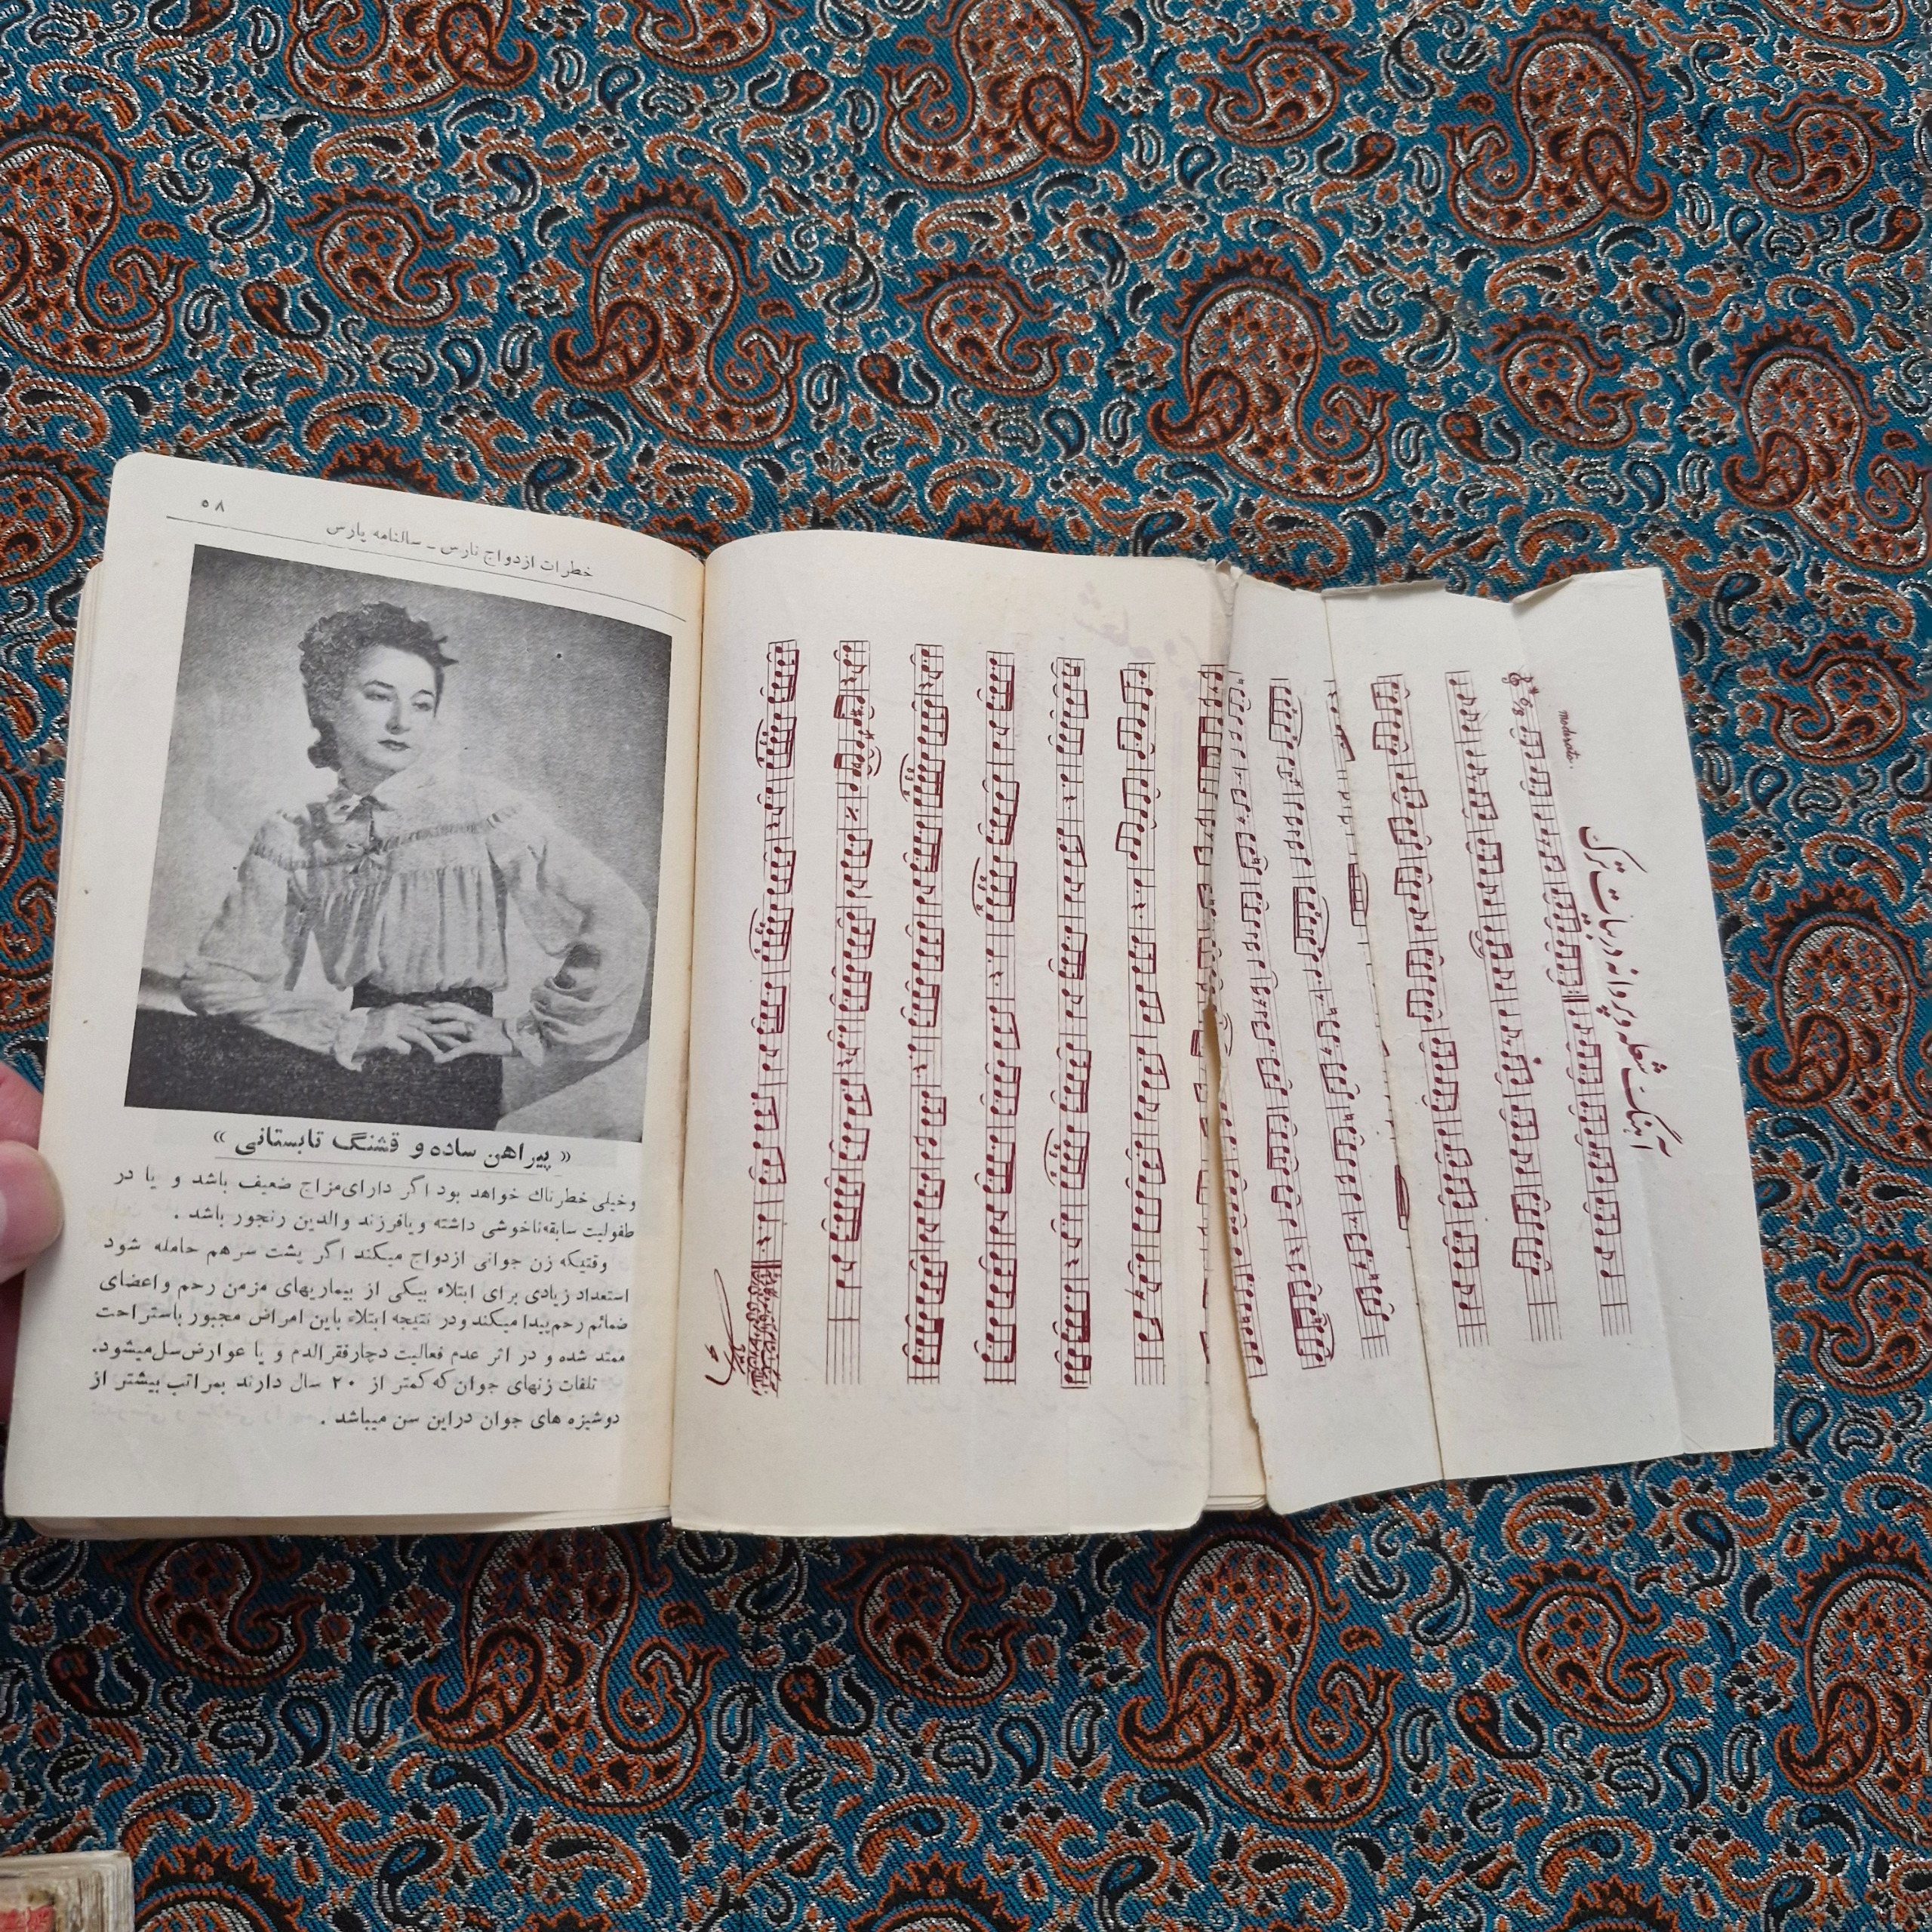 ۵۸
خطرات ازدواج نارس - سالنامه پارس
« پیراهن ساده و قشنگ تابستانی »
وخیلی خطرناك خواهد بود اگر دارای‌مزاج ضعیف باشد و یا در
طفولیت سابقه‌ناخوشی داشته ویافرزند والدین رنجور باشد .
وقتیکه زن جوانی ازدواج میکند اگر پشت سرهم حامله شود
استعداد زیادی برای ابتلاء بیکی از بیماریهای مزمن رحم واعضای
ضمائم رحم‌پیدا میکند ودر نتیجه ابتلاء باین امراض مجبور باستراحت
ممتد شده و در اثر عدم فعالیت دچارفقر الدم و یا عوارض‌سل‌میشود.
تلفات زنهای جوان که کمتر از ۲۰ سال دارند بمراتب بیشتر از
دوشیزه های جوان دراین سن میباشد .
آهنگ شعله و پروانه در بیات ترک
moderato.